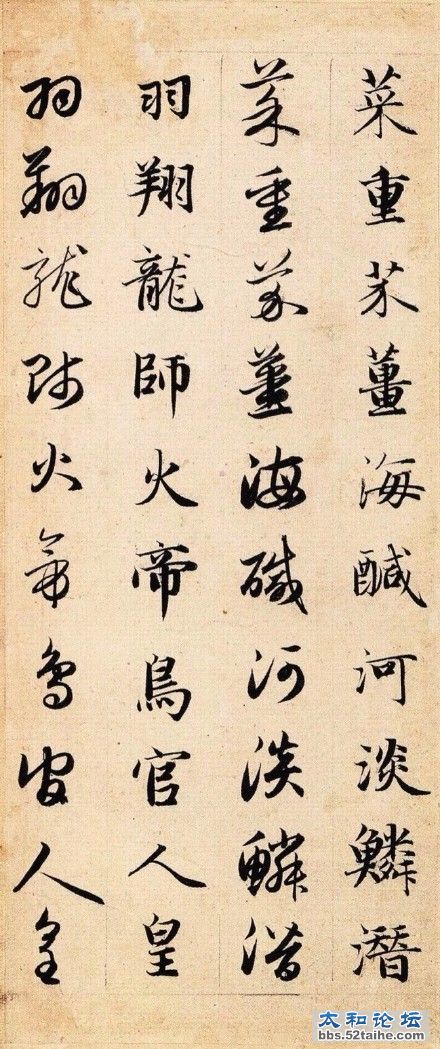 菜重芥薑海醎河淡鱗潛
菜重芥薑海醎河淡鱗潛
羽翔龍師火帝鳥官人皇
羽翔龍師火帝鳥官人皇
太和论坛
bbs.52taihe.com